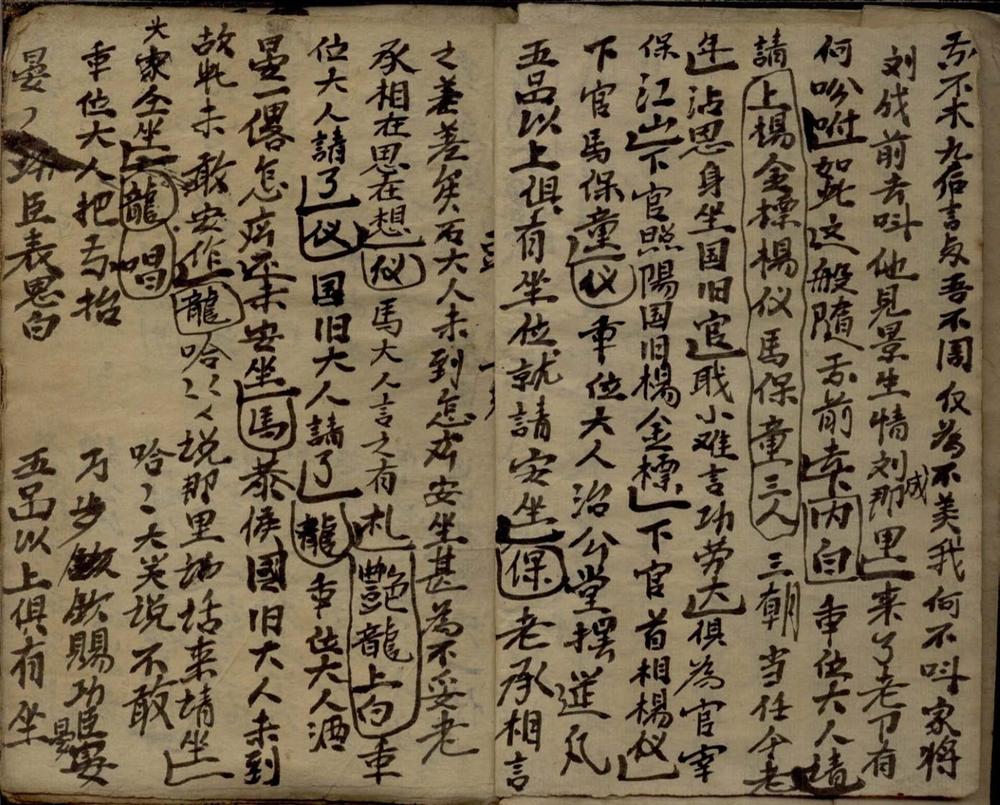 不木九后言反吾不周仅為不美我何不叫家将
刘成前去叫他見景生情刘成那里来了老刀有
何吩咐如此这般随前去内白重位大人请
請上楊金標楊仪馬保童三人三朝当任今老
年沾恩身坐国旧官职小难言功劳大俱為官宰
保江山下官照陽国旧楊金標下官首相楊仪
下官馬保童仪重位大人治公堂摆
五品以上俱有坐位就請安坐保老承相言
之差差矣石大人未到怎才安坐甚為不妥老
承相在思在想仪馬大人言之有札艷龍上白重
位大人請了仪国旧大人請了龍重位大人酒
晏一怎还未安坐馬恭侯國旧大人未到
故此未敢安作龍哈〻〻説那里話来请坐
大家仝坐龍唱哈〻大笑説不敢
重位大人把手抬万步欽賜功臣宴
晏臣表恩白五品以上俱有坐